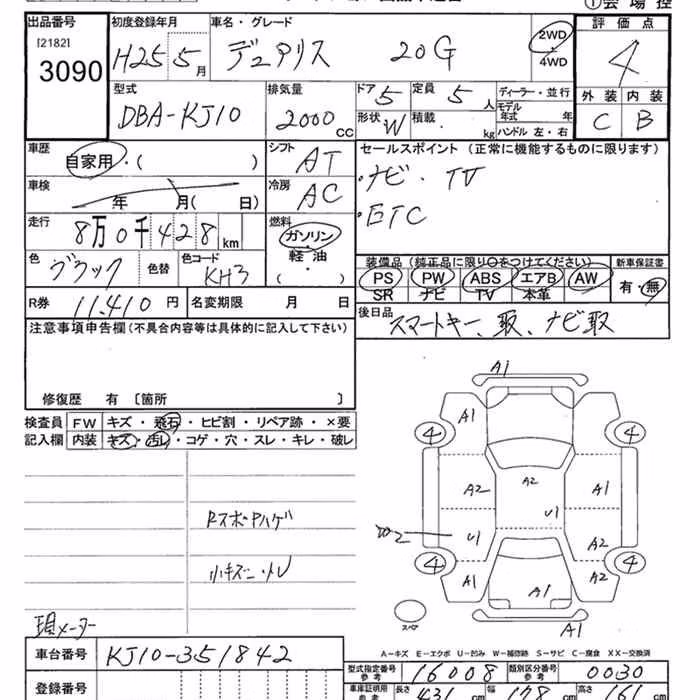 ①会場控
出品番号 初度登録年月 車名・グレード 評価点
[2182] 3090 H25 5月 デュアリス 20G 2WD 4WD 4
型式 排気量 ドア 5 定員 5人 ディーラー・並行
外装 内装
DBA-KJ10 2000cc 形状 W 積載 kg モデル年式 年
ハンドル 左・右 C B
車歴 自家用・( ) シフト AT セールスポイント(正常に機能するものに限ります)
・ナビ・TV
車検 年 月( 日) 冷房 AC
・ETC
走行 8万0千428km 燃料 ガソリン 軽油 ( ・ )
色 ブラック 色替 色コード KH3
装備品(純正品に限り○をつけてください) 新車保証書
PS PW ABS エアB AW 有・無
SR ナビ TV 本革
R券 11,410円 名変期限 月 日
後日品 スマートキー、取、ナビ取
注意事項申告欄(不具合内容等は具体的に記入して下さい)
修復歴 有 [箇所 ]
検査員 FW キズ・飛石・ヒビ割・リペア跡・×要
記入欄 内装 キズ・汚レ・コゲ・穴・スレ・キレ・破レ
A1
A1
4 4
A2 A2 A1
U1
W2 U1 A2
4 4
A1 A1 A2
A1
スペア
小キズ
現メーター
車台番号 KJ10-351842
A-キズ E-エクボ U-凹み W-補修跡 S-サビ C-腐食 XX-交換済
型式指定番号 参考 16008 類別区分番号 参考 0030
登録番号
車庫証明用 参考 長さ 431cm 幅 178cm 高さ 161cm